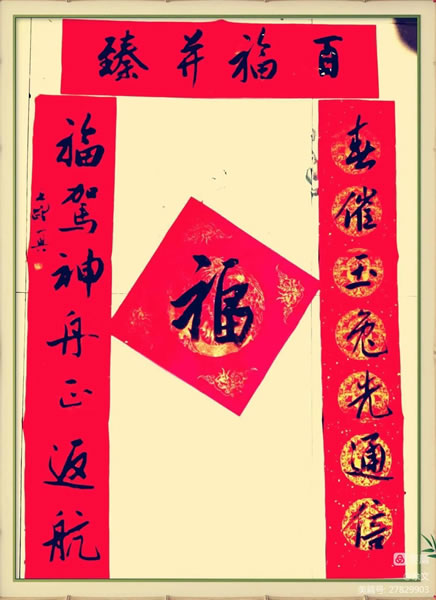 百福并臻
春催玉兔先通信
福駕神舟正返航
福
美篇号: 27829903